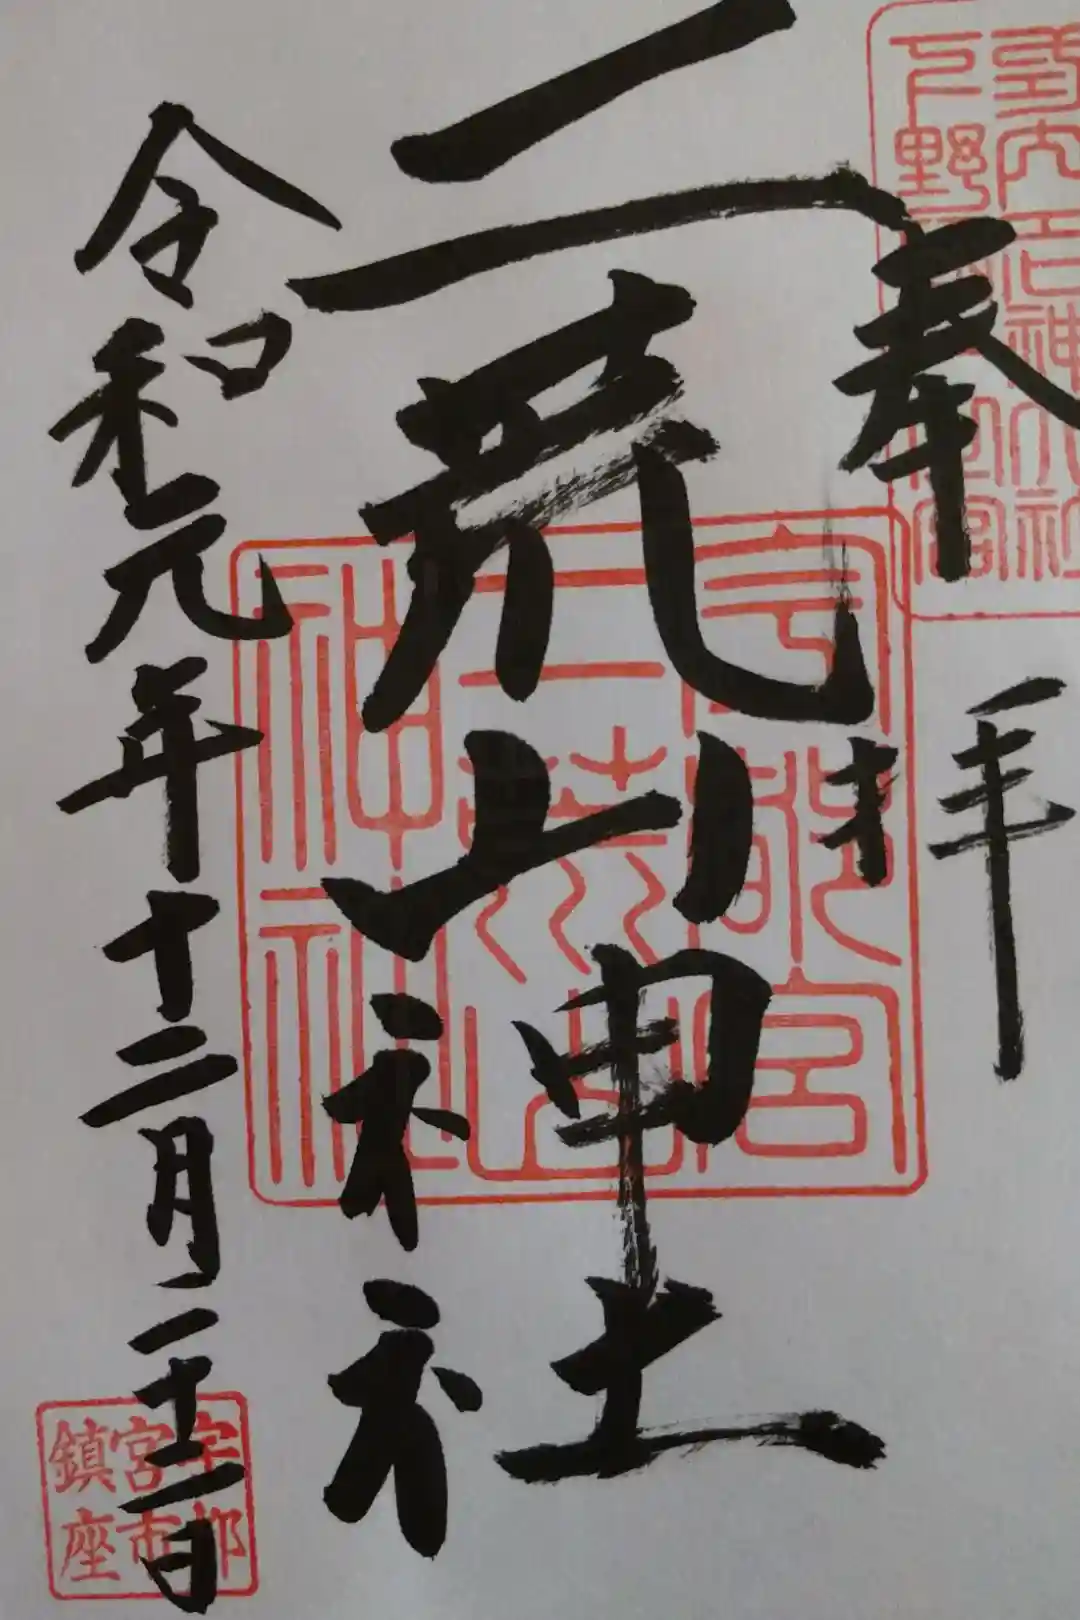 式内名神大社
下野國一之宮
奉拝
宇都宮
二荒山
神社
二荒山神社
令和元年十二月
宇都
宮市
鎮座